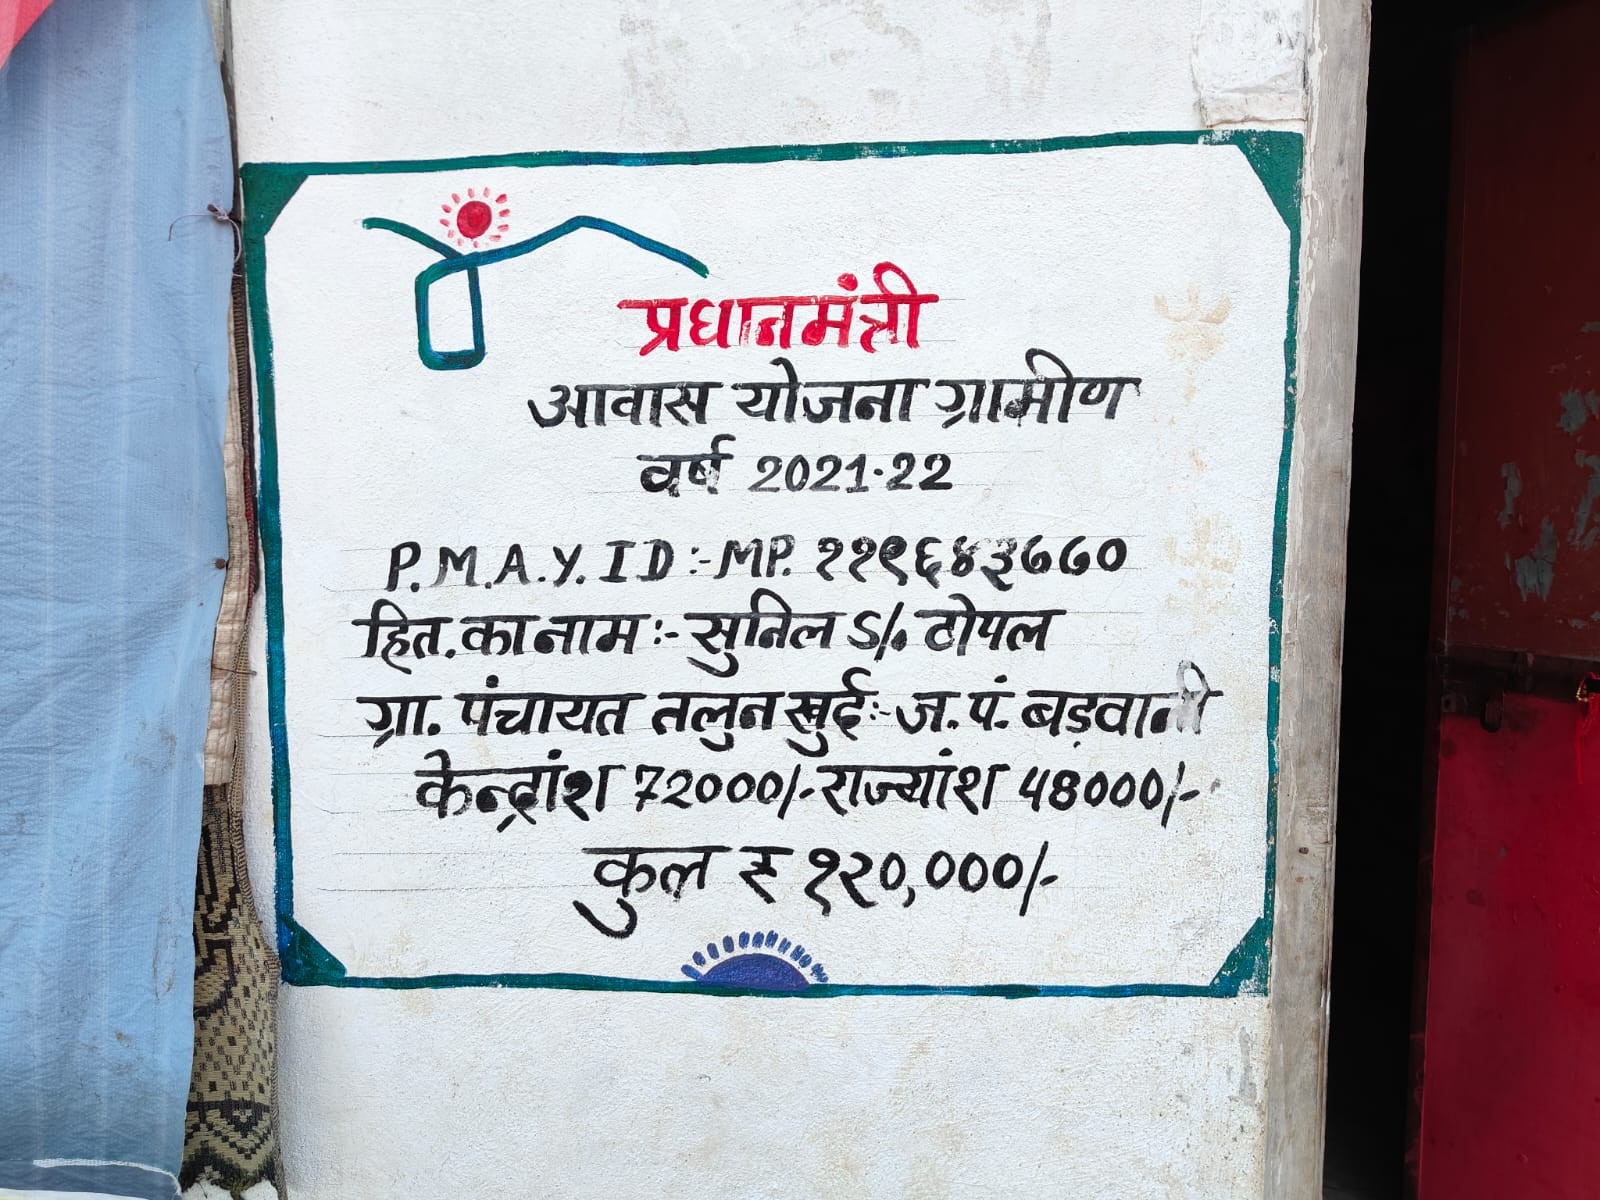 प्रधानमंत्री
आवास योजना ग्रामीण
वर्ष 2021-22
P.M.A.Y. I D :- MP. ११९६४३७७०
हित. का नाम :- सुनिल S/० टोपल
ग्रा. पंचायत तलुन खुर्द :- ज. पं. बड़वानी
केन्द्रांश 72000/- राज्यांश 48000/-
कुल ₹ १२०,०००/-